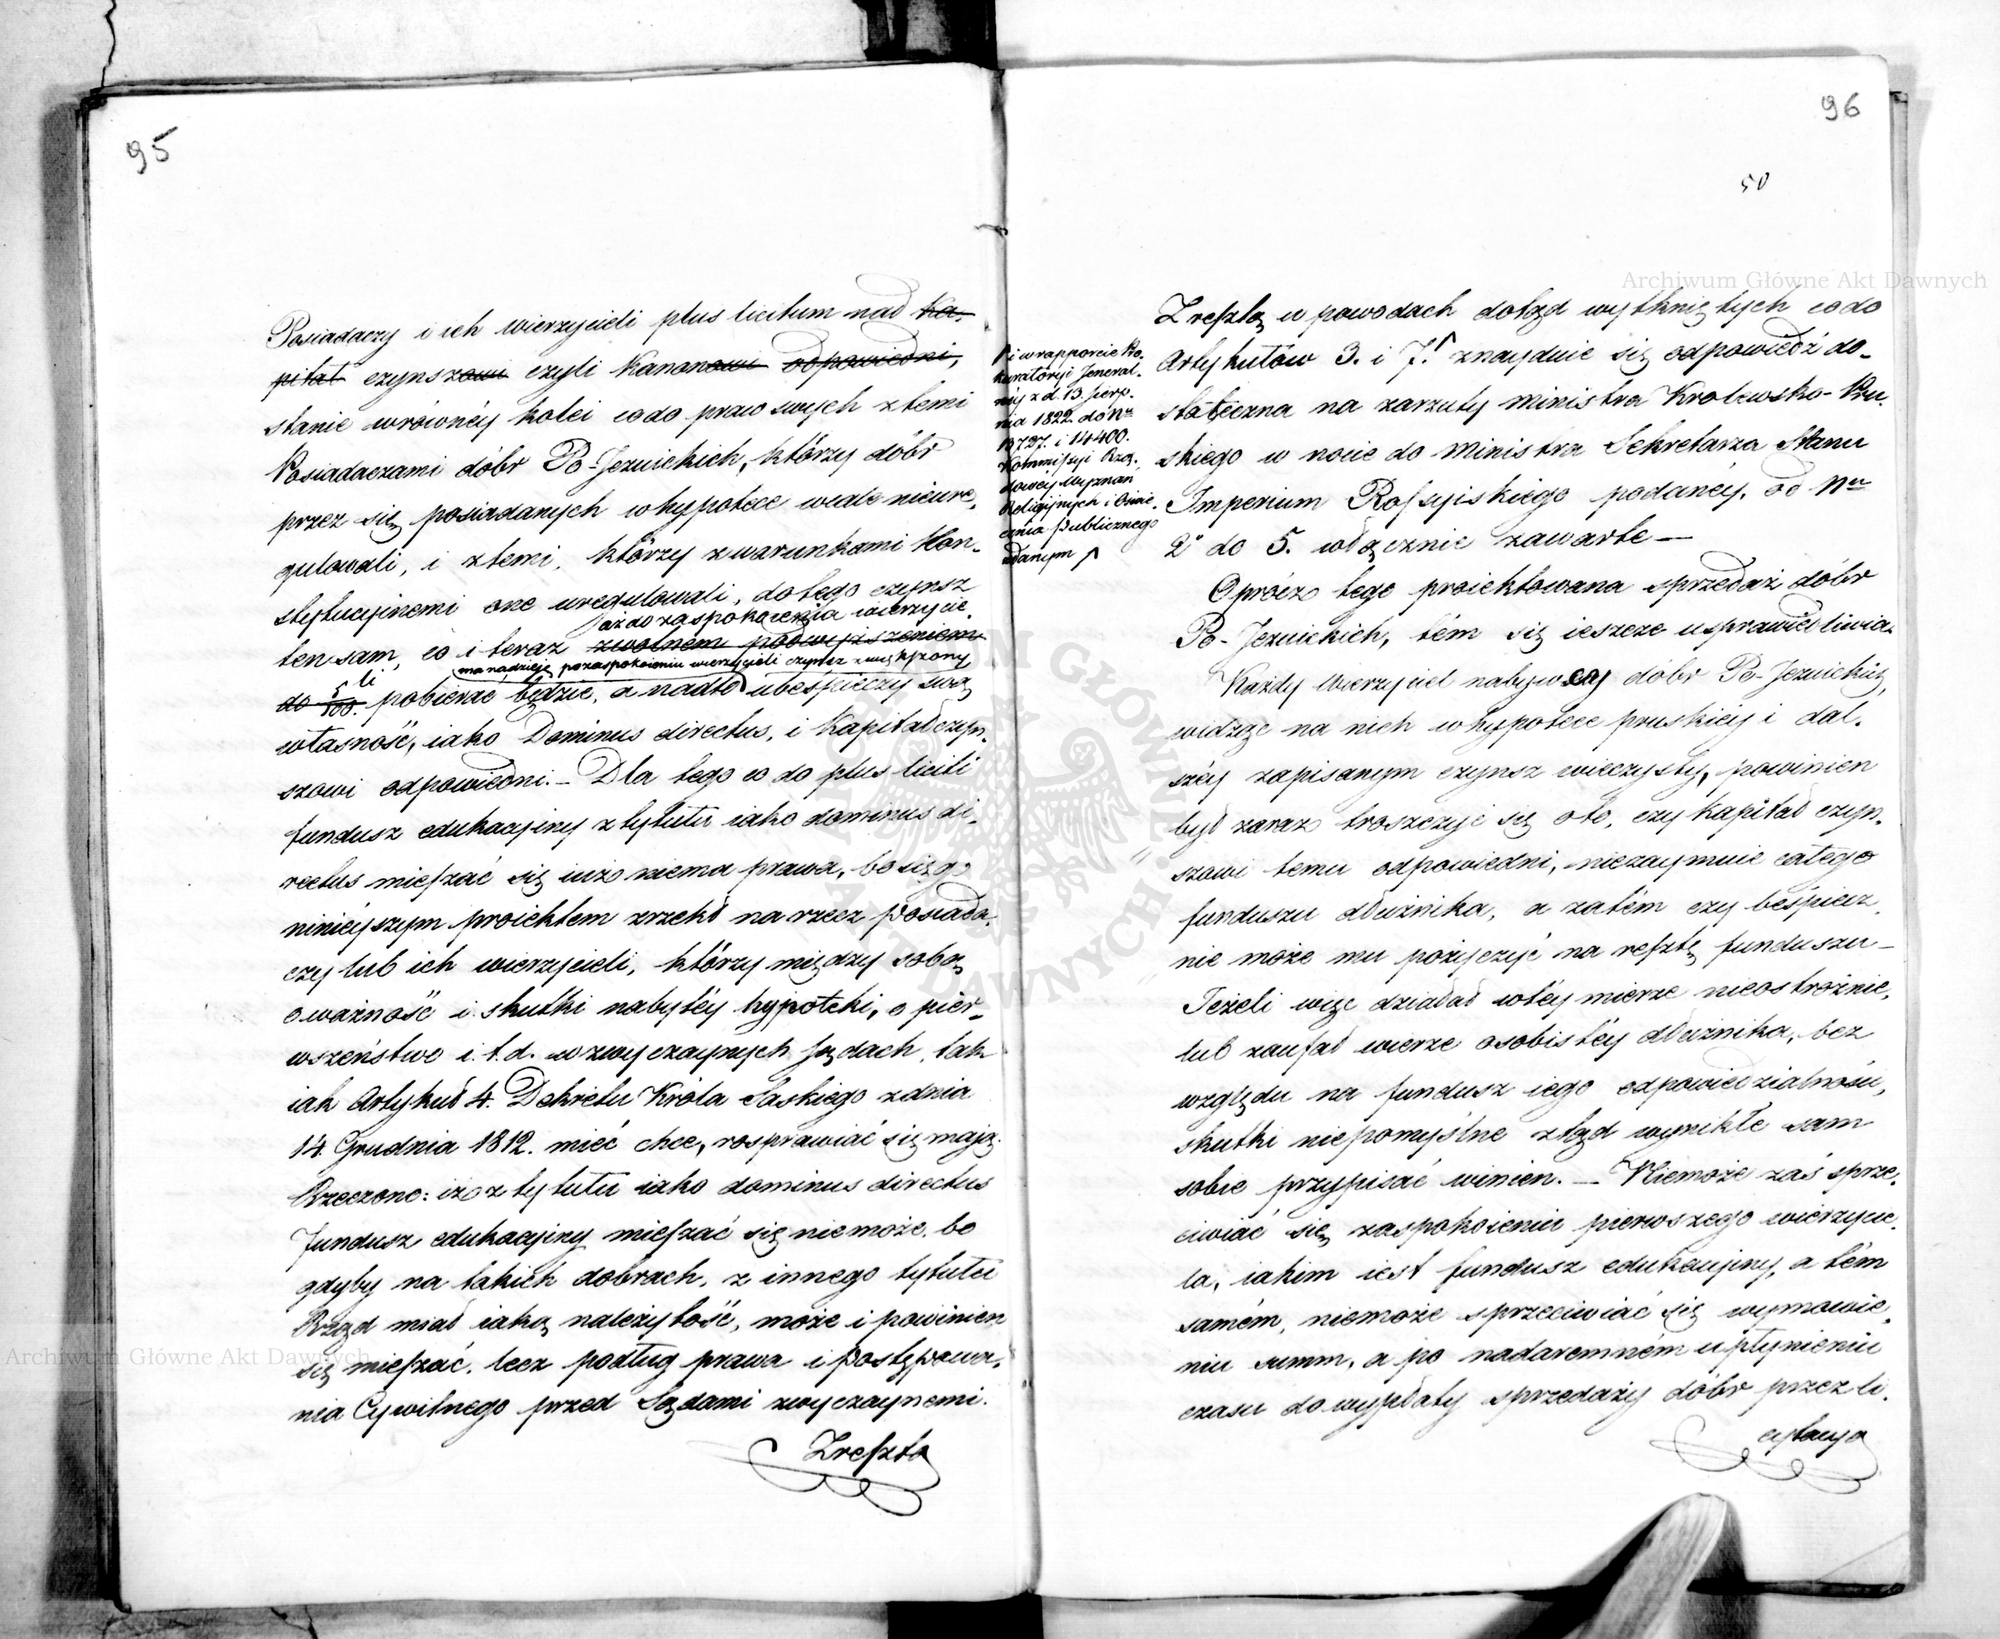 95
Posiadaczy i ich wierzycieli plus licitum nad ka-
pitał czynszowi czyli Kanonowi odpowiedni,
stanie wrównéy kolei codo praw swych z temi
Posiadaczami dóbr Po-Jezuickich, którzy dóbr
przez się posiadanych w hypotece wcale nieure-
gulowali, i z temi, którzy z warunkami Kon-
stytucyinemi one uregulowali, do tego czynsz
aż do zaspokoienia wierzycie-
ten sam, co i teraz zwolnem podwyższeniem
li ma nadzieję po zaspokoieniu wierzycieli czynsz zwiększony
do 5/100. pobierać będzie, a nadto ubespieczy swą
własność, iako Dominus directus, i Kapitał czyn-
szowi odpowiedni. – Dla tego co do plus liciti
fundusz edukacyiny z tytułu iako dominus di-
rectus mieszać się iuż niema prawa, bo się go
ninieyszym proiektem zrzekł na rzecz posiada-
czy lub ich wierzycieli, którzy między sobą
o ważność i skutki nabytéy hypoteki, o pier-
wszeństwo i. t. d. w zwyczaynych Sądach, tak
iak Artykuł 4. Dekretu Króla Saskiego z dnia
14. Grudnia 1812. mieć chce, rosprawiać się mają.
Orzeczono: iż z tytułu iako dominus directus
fundusz edukacyiny mieszać się niemoże, bo
gdyby na takich dobrach, z innego tytułu
Rząd miał iaką należytość, może i powinien
się mieszać, lecz podług prawa i postępowa-
nia Cywilnego przed Sądami zwyczaynemi.
Zresztą
96
50
i w rapporcie Pro-
kuratoryi Jeneral-
néy z d. 13. Sierp-
nia 1822. do Nr
13797. i 14400.
Kommissyi Rzą-
dowéy Wyznań
Religiynych i Oświe-
cenia Publicznego
zdanym
Zresztą w powodach dotąd wytkniętych codo
Artykułów 3. i 7. znayduie się odpowiedź do-
stateczna na zarzuty ministra Królewsko-Pru-
skiego w nocie do Ministra Sekretarza Stanu
Imperium Rossyiskiego podanéy, od Nru
2o do 5. włącznie zawarte —
Oprócz tego proiektowana sprzedaż dóbr
Po-Jezuickich, tém się ieszcze usprawiedliwia.
Każdy Wierzyciel nabywcy dóbr Po-Jezuickich,
widząc na nich w hypotece pruskiéy i dal-
széy zapisanym czynsz wieczysty, powinien
był zaraz troszczyć się o to, czy kapitał czyn-
szowi temu odpowiedni, niezaymuie całego
funduszu dłużnika, a zatém czy bespiecz-
nie może mu pożyczyć na resztę funduszu –
Jeżeli więc działał w téy mierze nieostrożnie,
lub zaufał wierze osobistéy dłużnika, bez
względu na fundusz iego odpowiedzialności,
skutki niepomyślne ztąd wynikłe sam
sobie przypisać winien. — Niemoże zaś sprze-
ciwiać się zaspokoieniu pierwszego wierzycie-
la, iakim iest fundusz edukacyiny, a tém
samém, niemoże sprzeciwiać się wymowie-
niu summ, a po nadaremném upłynieniu
czasu do wypłaty sprzedaży dóbr przez li-
cytacyą
Archiwum Główne Akt Dawnych
Archiwum Główne Akt Dawnych